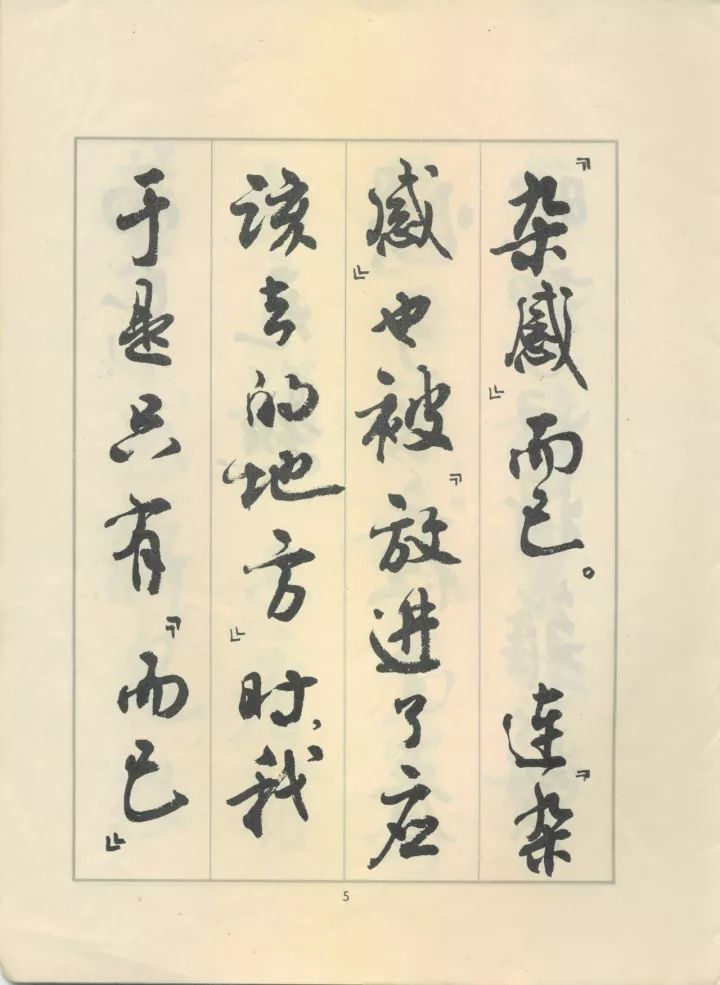 『杂感』而已。 连『杂
感』也被『放进了应
该去的地方』时，我
于是只有『而已』
5